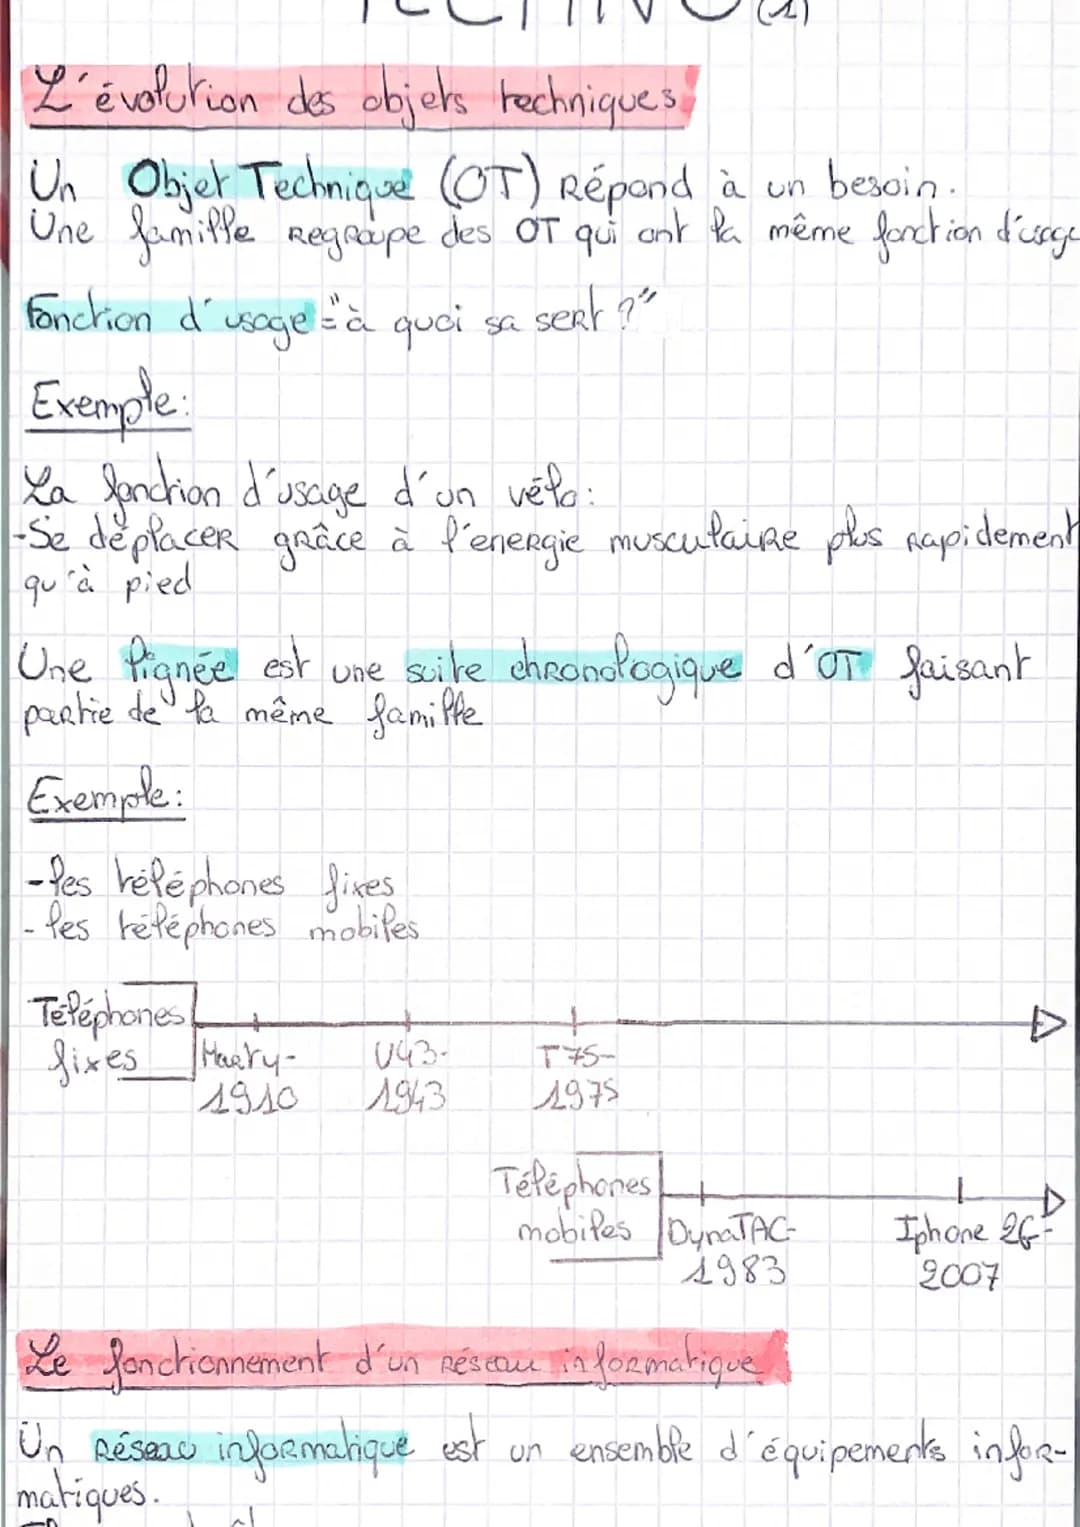 TECHNO (1)
L'évolution des objets techniques
Un Objet Technique (OT) Répond à un besoin.
Une famille Regroupe des OT qui ont la même fonction d'usage
Fonction d'usage = "à quoi sa sert ?"
Exemple:
La fonction d'usage d'un vélo:
-Se déplacer grâce à l'energie musculaire plus rapidement
qu'à pied
Une lignée est une suite chronologique d'OT faisant
partie de la même famille
Exemple:
-les téléphones fixes
- les téléphones mobiles
Téléphones
fixes
Marty-
1910
U43-
1943
T75-
1975
Téléphones
mobiles
DynaTAC-
1983
Iphone 2G-
2007
Le fonctionnement d'un réseau informatique
Un Réseau informatique est un ensemble d'équipements infor-
matiques.